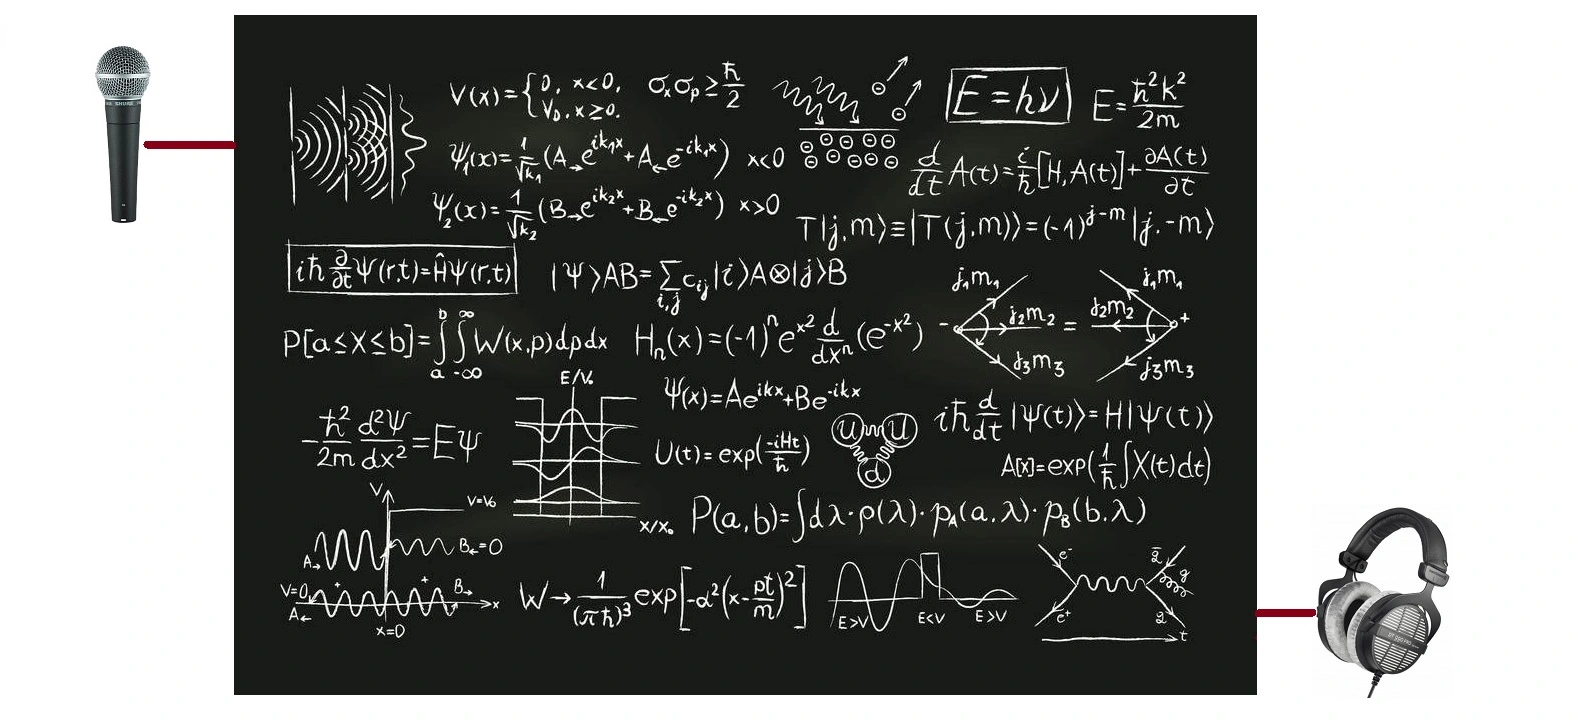 SHURE
V(x)={0, x<0,
V₀, x≥0.
σₓσₚ≥ħ/2
E=hν
E=ħ²k²/2m
ψ₁(x)=1/√k₁(A→e^ik₁x+A←e^-ik₁x) x<0
d/dt A(t)=i/ħ[H,A(t)]+∂A(t)/∂t
ψ₂(x)=1/√k₂(B→e^ik₂x+B←e^-ik₂x) x>0
T|j,m⟩≡|T(j,m)⟩=(-1)^j-m|j,-m⟩
iħ ∂/∂t Ψ(r,t)=ĤΨ(r,t)
|Ψ⟩AB=∑i,j cᵢⱼ|i⟩A⊗|j⟩B
j₁m₁
j₂m₂
j₃m₃
-
=
j₁m₁
j₂m₂
j₃m₃
+
P[a≤X≤b]=∫a^b ∫-∞^∞ W(x,p)dpdx
Hₙ(x)=(-1)ⁿe^x² d/dxⁿ(e^-x²)
E/V₀
x/x₀
Ψ(x)=Ae^ikx+Be^-ikx
-ħ²/2m d²Ψ/dx²=EΨ
U(t)=exp(-iHt/ħ)
u u
d
iħ d/dt|Ψ(t)⟩=H|Ψ(t)⟩
A[x]=exp(1/ħ∫X(t)dt)
P(a,b)=∫dλ·ρ(λ)·p_A(a,λ)·p_B(b,λ)
V
V=V₀
A→
B←=0
V=0
A←
B→
x
x=0
W→1/(πħ)³exp[-α²(x-pt/m)²]
E>V
E<V
E>V
e⁻
e⁺
q̄
g
q
t
DT 990 PRO